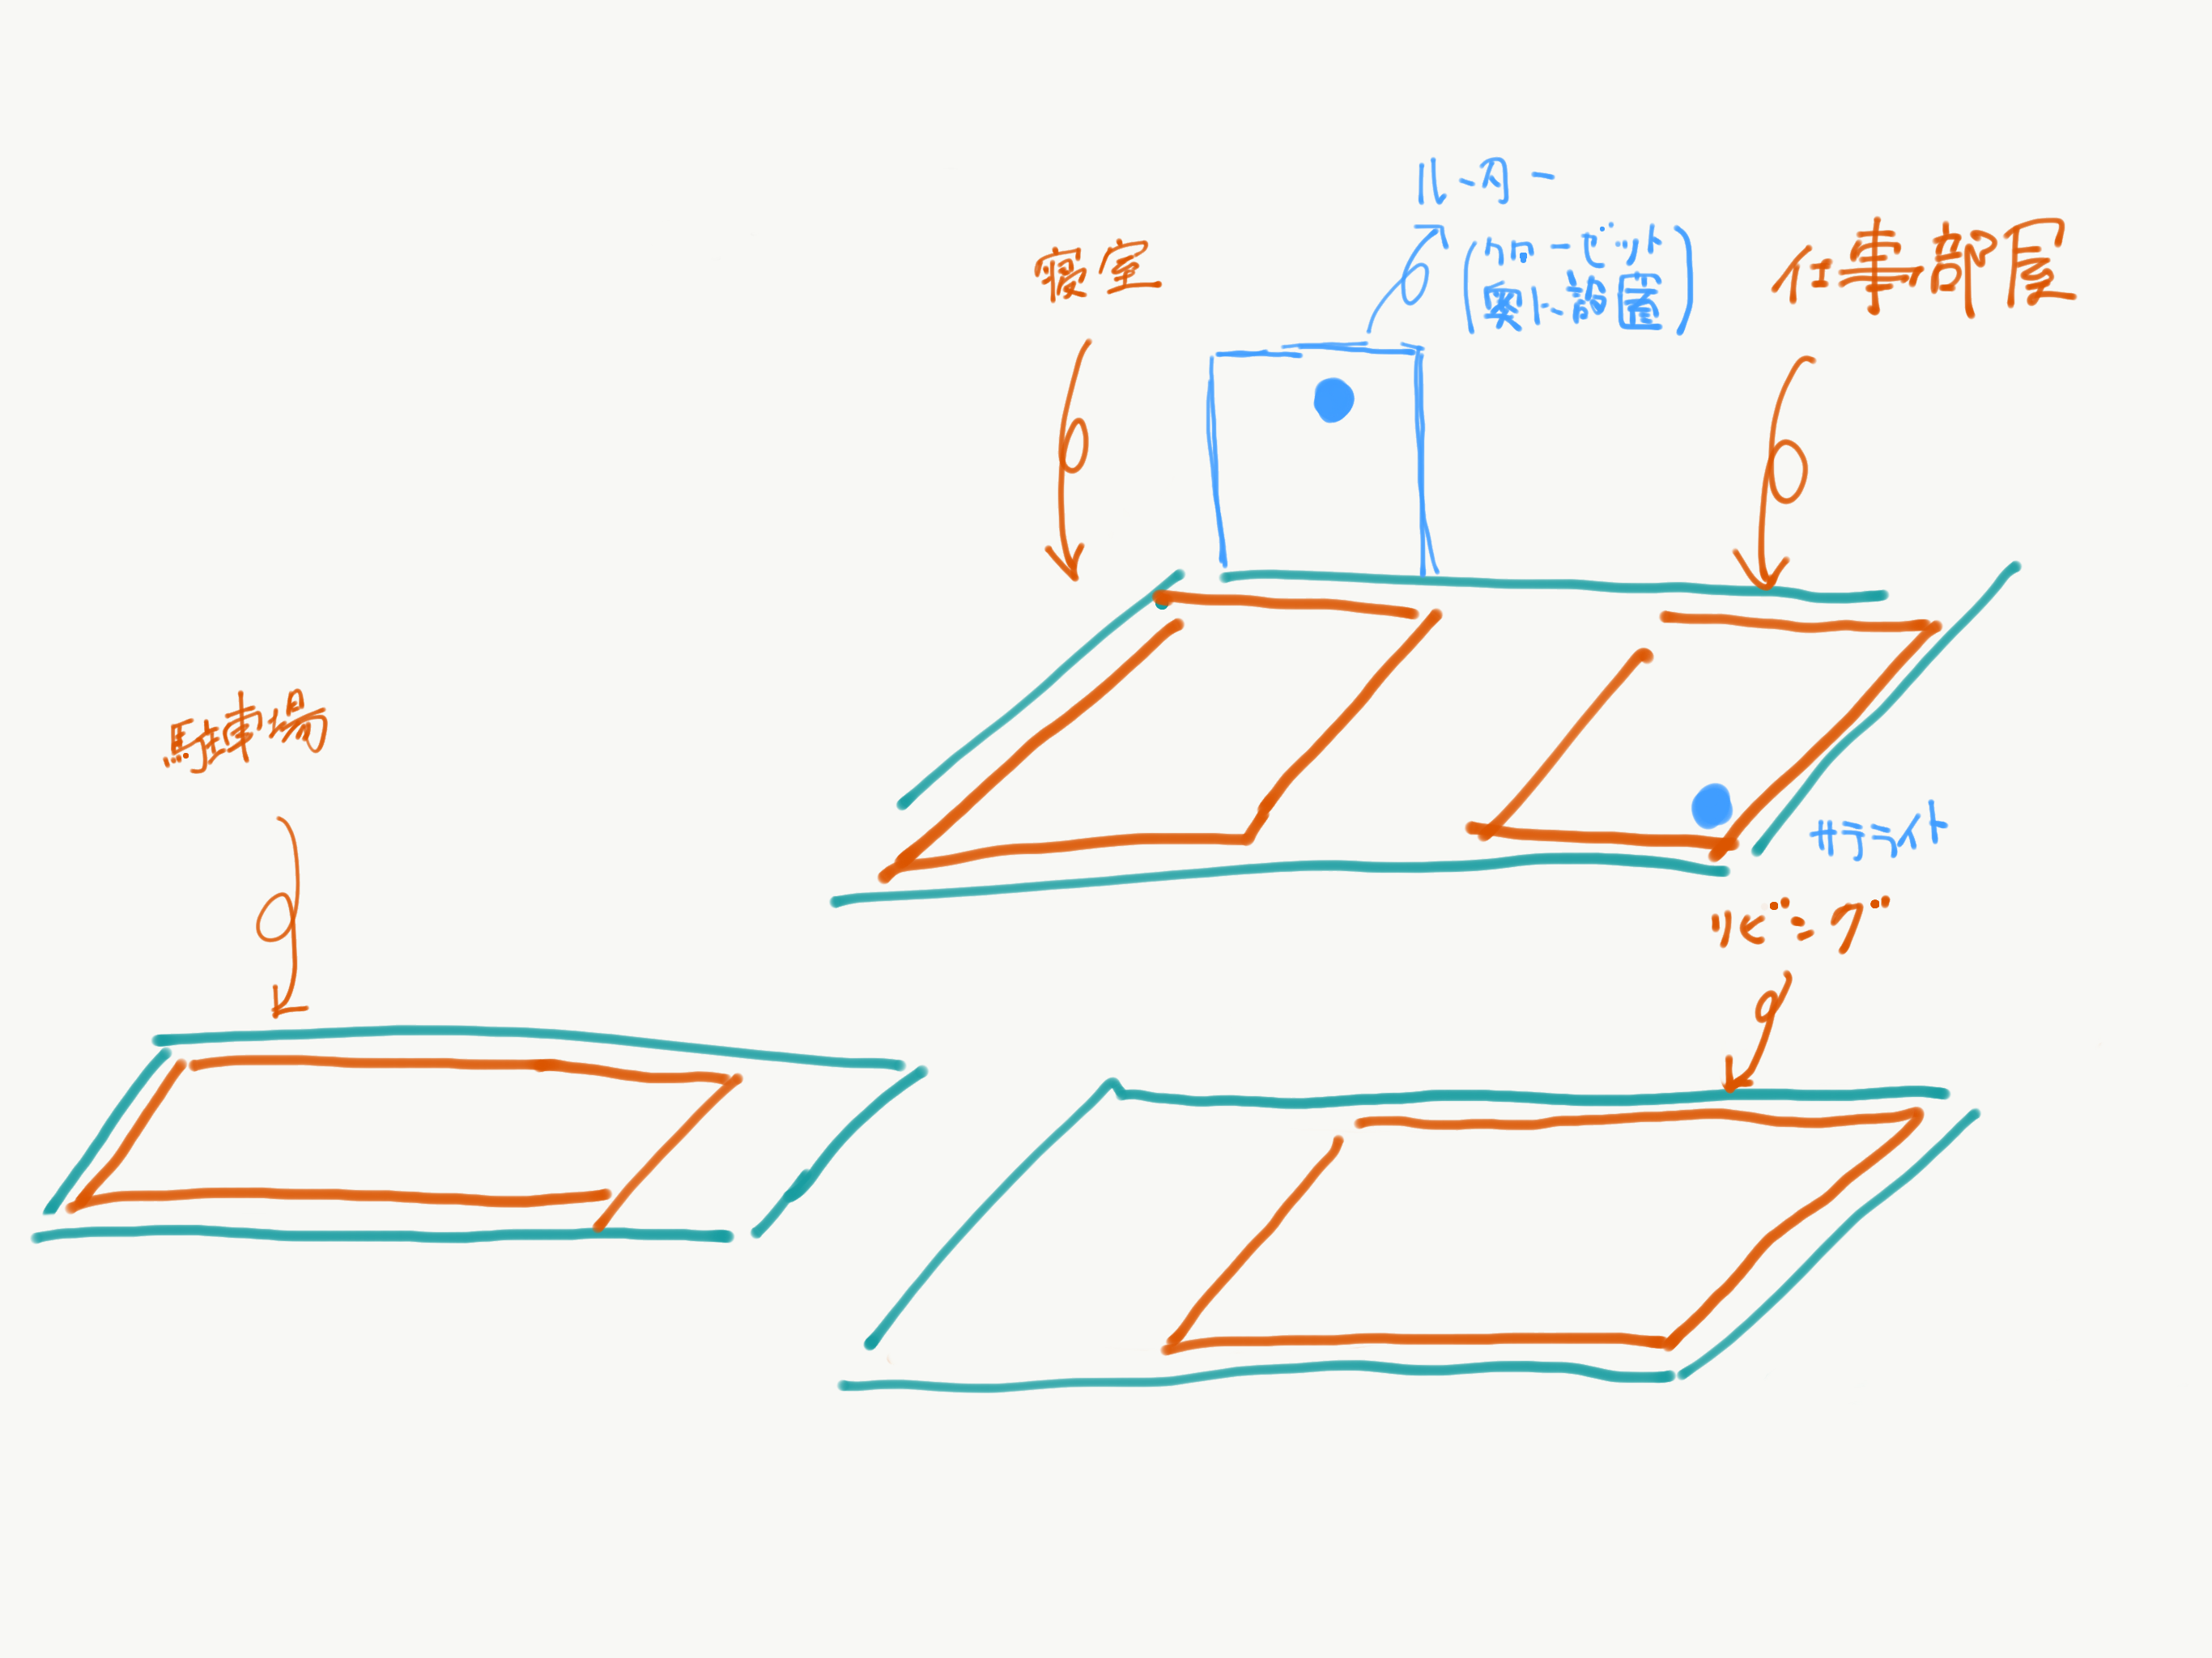 ルーター
(クローゼット
裏に設置)
寝室
仕事部屋
駐車場
サテライト
リビング